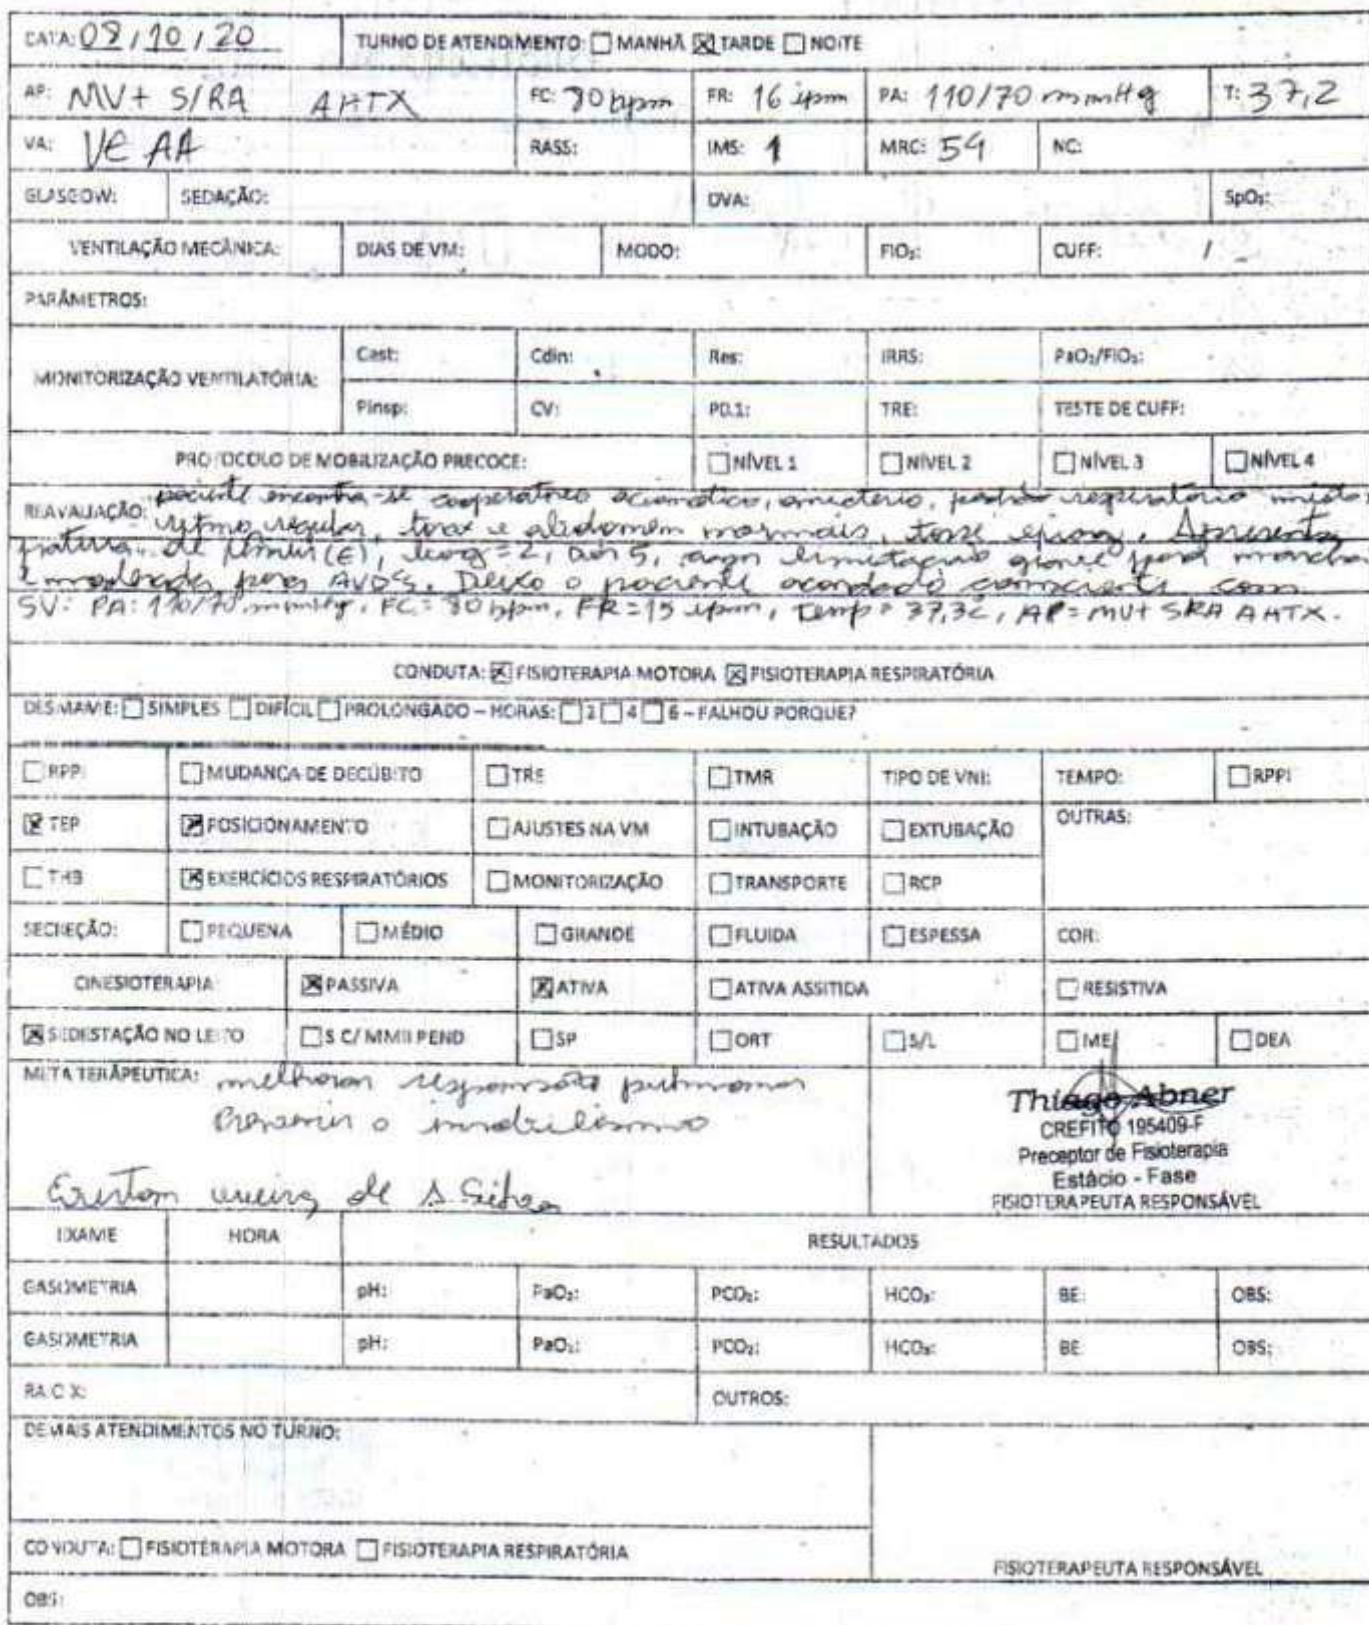 DATA: 08/10/20 TURNO DE ATENDIMENTO: MANHÃ TARDE NOITE
AP: MV+ S/RA AHTX FC: 80 bpm FR: 16 ipm PA: 110/70 mmHg T: 37,2
VA: VE AA RASS: IMS: 1 MRC: 54 NC:
GLASGOW: SEDAÇÃO: DVA: SpO₂:
VENTILAÇÃO MECÂNICA: DIAS DE VM: MODO: FIO₂: CUFF: /
PARÂMETROS:
MONITORIZAÇÃO VENTILATÓRIA: Cest: Cdin: Res: IRRS: PaO₂/FIO₂:
Pinsp: CV: P0.1: TRE: TESTE DE CUFF:
PROTOCOLO DE MOBILIZAÇÃO PRECOCE: NÍVEL 1 NÍVEL 2 NÍVEL 3 NÍVEL 4
REAVALIAÇÃO: paciente encontra-se cooperativo acianótico, padrão respiratório misto
rytmo regular, torax e abdomem normais, Apresenta
de (E), = 2, 5, limitação para marcha
e para AVD's. Deixo o paciente acordado consciente com
SV: PA: 110/70 mmHg, FC = 80 bpm, FR = 15 ipm, Temp = 37,3C, AP = MV+ SRA AHTX.
CONDUTA: FISIOTERAPIA MOTORA FISIOTERAPIA RESPIRATÓRIA
DESMAME: SIMPLES DIFÍCIL PROLONGADO – HORAS: 2 4 6 – FALHOU PORQUE?
RPPI MUDANÇA DE DECÚBITO TRE TMR TIPO DE VNI: TEMPO: RPPI
TEP POSICIONAMENTO AJUSTES NA VM INTUBAÇÃO EXTUBAÇÃO OUTRAS:
THB EXERCÍCIOS RESPIRATÓRIOS MONITORIZAÇÃO TRANSPORTE RCP
SECREÇÃO: PEQUENA MÉDIO GRANDE FLUIDA ESPESSA COR:
CINESIOTERAPIA PASSIVA ATIVA ATIVA ASSITIDA RESISTIVA
SEDESTAÇÃO NO LEITO S C/ MMII PEND SP ORT S/L ME DEA
META TERÁPEUTICA: melhorar pulmonar
o imobilismo
Thiago Abner
CREFITO 195409-F
Preceptor de Fisioterapia
Estácio - Fase
FISIOTERAPEUTA RESPONSÁVEL
EXAME HORA RESULTADOS
GASOMETRIA pH: PaO₂: PCO₂: HCO₃: BE: OBS:
GASOMETRIA pH: PaO₂: PCO₂: HCO₃: BE OBS:
RAIO X: OUTROS:
DEMAIS ATENDIMENTOS NO TURNO:
CONDUTA: FISIOTERAPIA MOTORA FISIOTERAPIA RESPIRATÓRIA
FISIOTERAPEUTA RESPONSÁVEL
OBS: